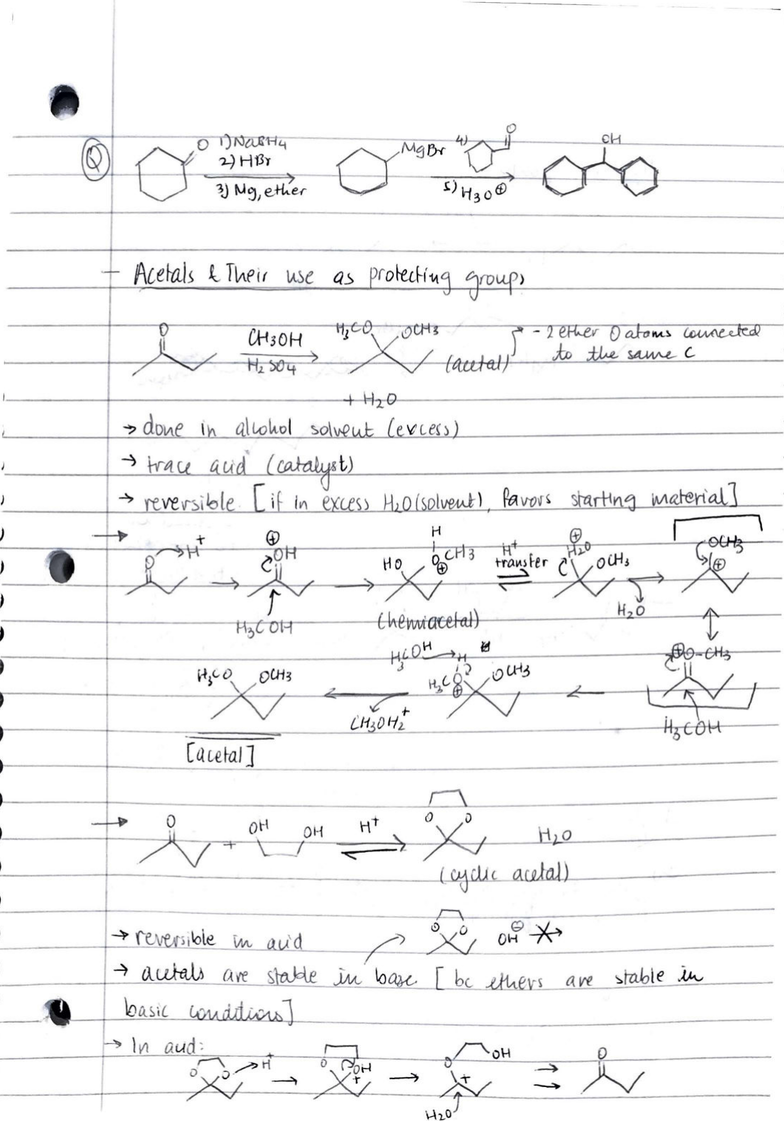 Q
O 1) NaBH4
2) HBr
3) Mg, ether
MgBr
4) O
5) H3O⊕
OH
- Acetals & Their use as protecting groups
O
CH3OH
H2SO4
H3CO OCH3
(acetal)
- 2 ether O atoms connected
to the same C
+ H2O
→ done in alcohol solvent (excess)
→ trace acid (catalyst)
→ reversible [if in excess H2O (solvent), favors starting material]
→
O H+
⊕
OH
H3COH
HO
H
O CH3
⊕
(hemiacetal)
H+
transfer
⊕
H2O
OCH3
H2O
OCH3
⊕
⊕O-CH3
H3COH
H3COH H
H3CO
⊕
OCH3
CH3OH2+
H3CO OCH3
[acetal]
→
O
+
OH OH
H+
O O
(cyclic acetal)
H2O
→ reversible in acid
O O
OH⊖
→ acetals are stable in base. [bc ethers are stable in
basic conditions]
→ In acid:
O O H+
O OH
+
O OH
+
H2O
O